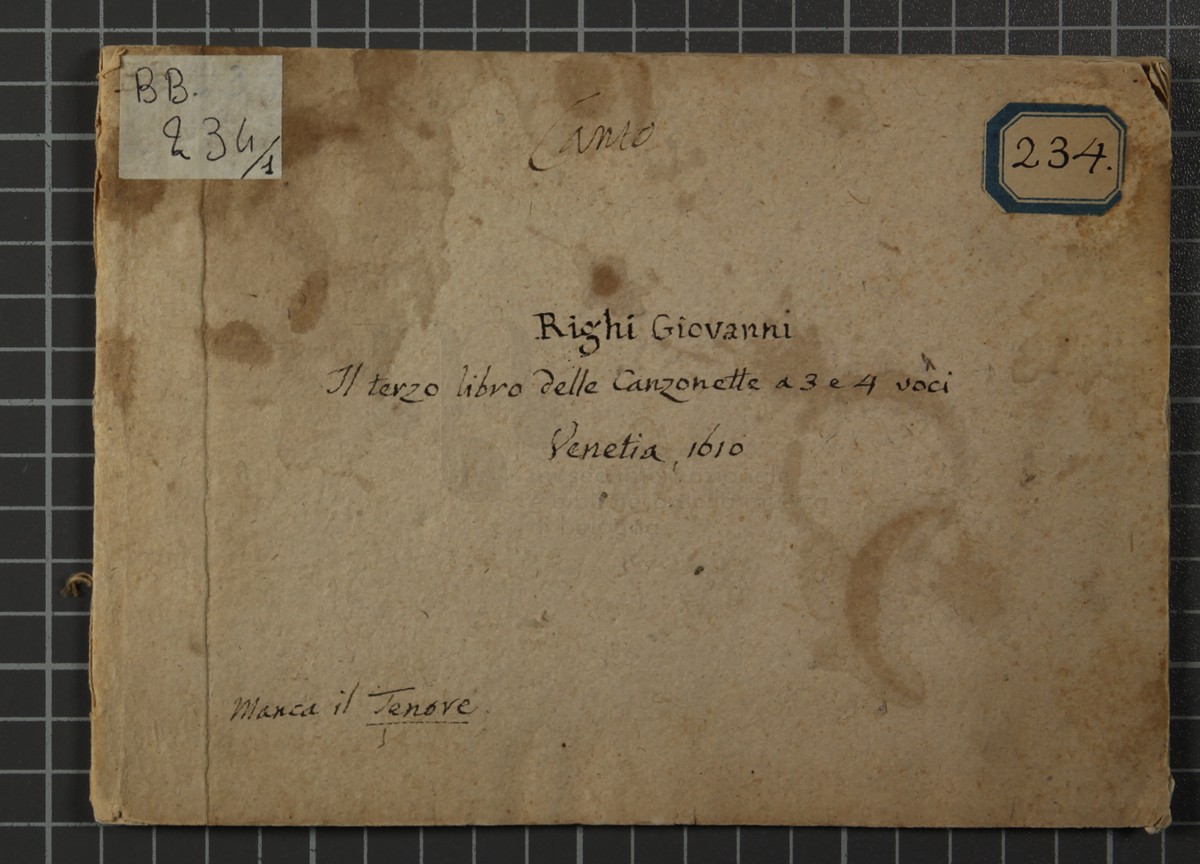 BB.
234/1
Canto
234.
Righi Giovanni
Il terzo libro delle Canzonette a 3 e 4 voci
Venetia, 1610
Manca il Tenore.